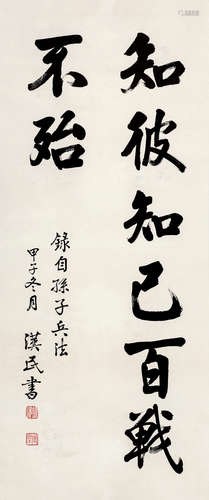 知彼知己百戰
不殆
錄自孫子兵法
甲子冬月 漢民書